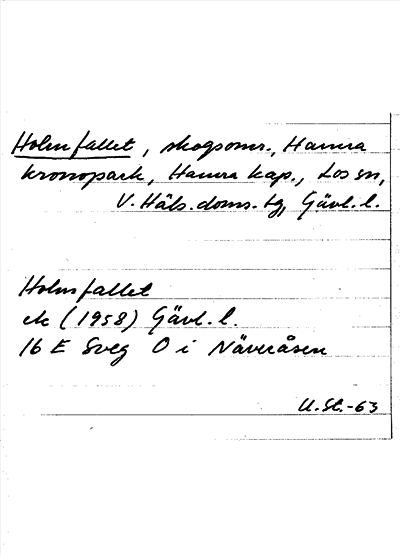 Holmfallet, skogsomr., Hamra
kronopark, Hamra kap., Los sn,
V. Häls. doms. tg, Gävl. l.
Holmfallet
ek (1958) Gävl. l.
16 E Sveg O i Näveråsen
U. St.-63